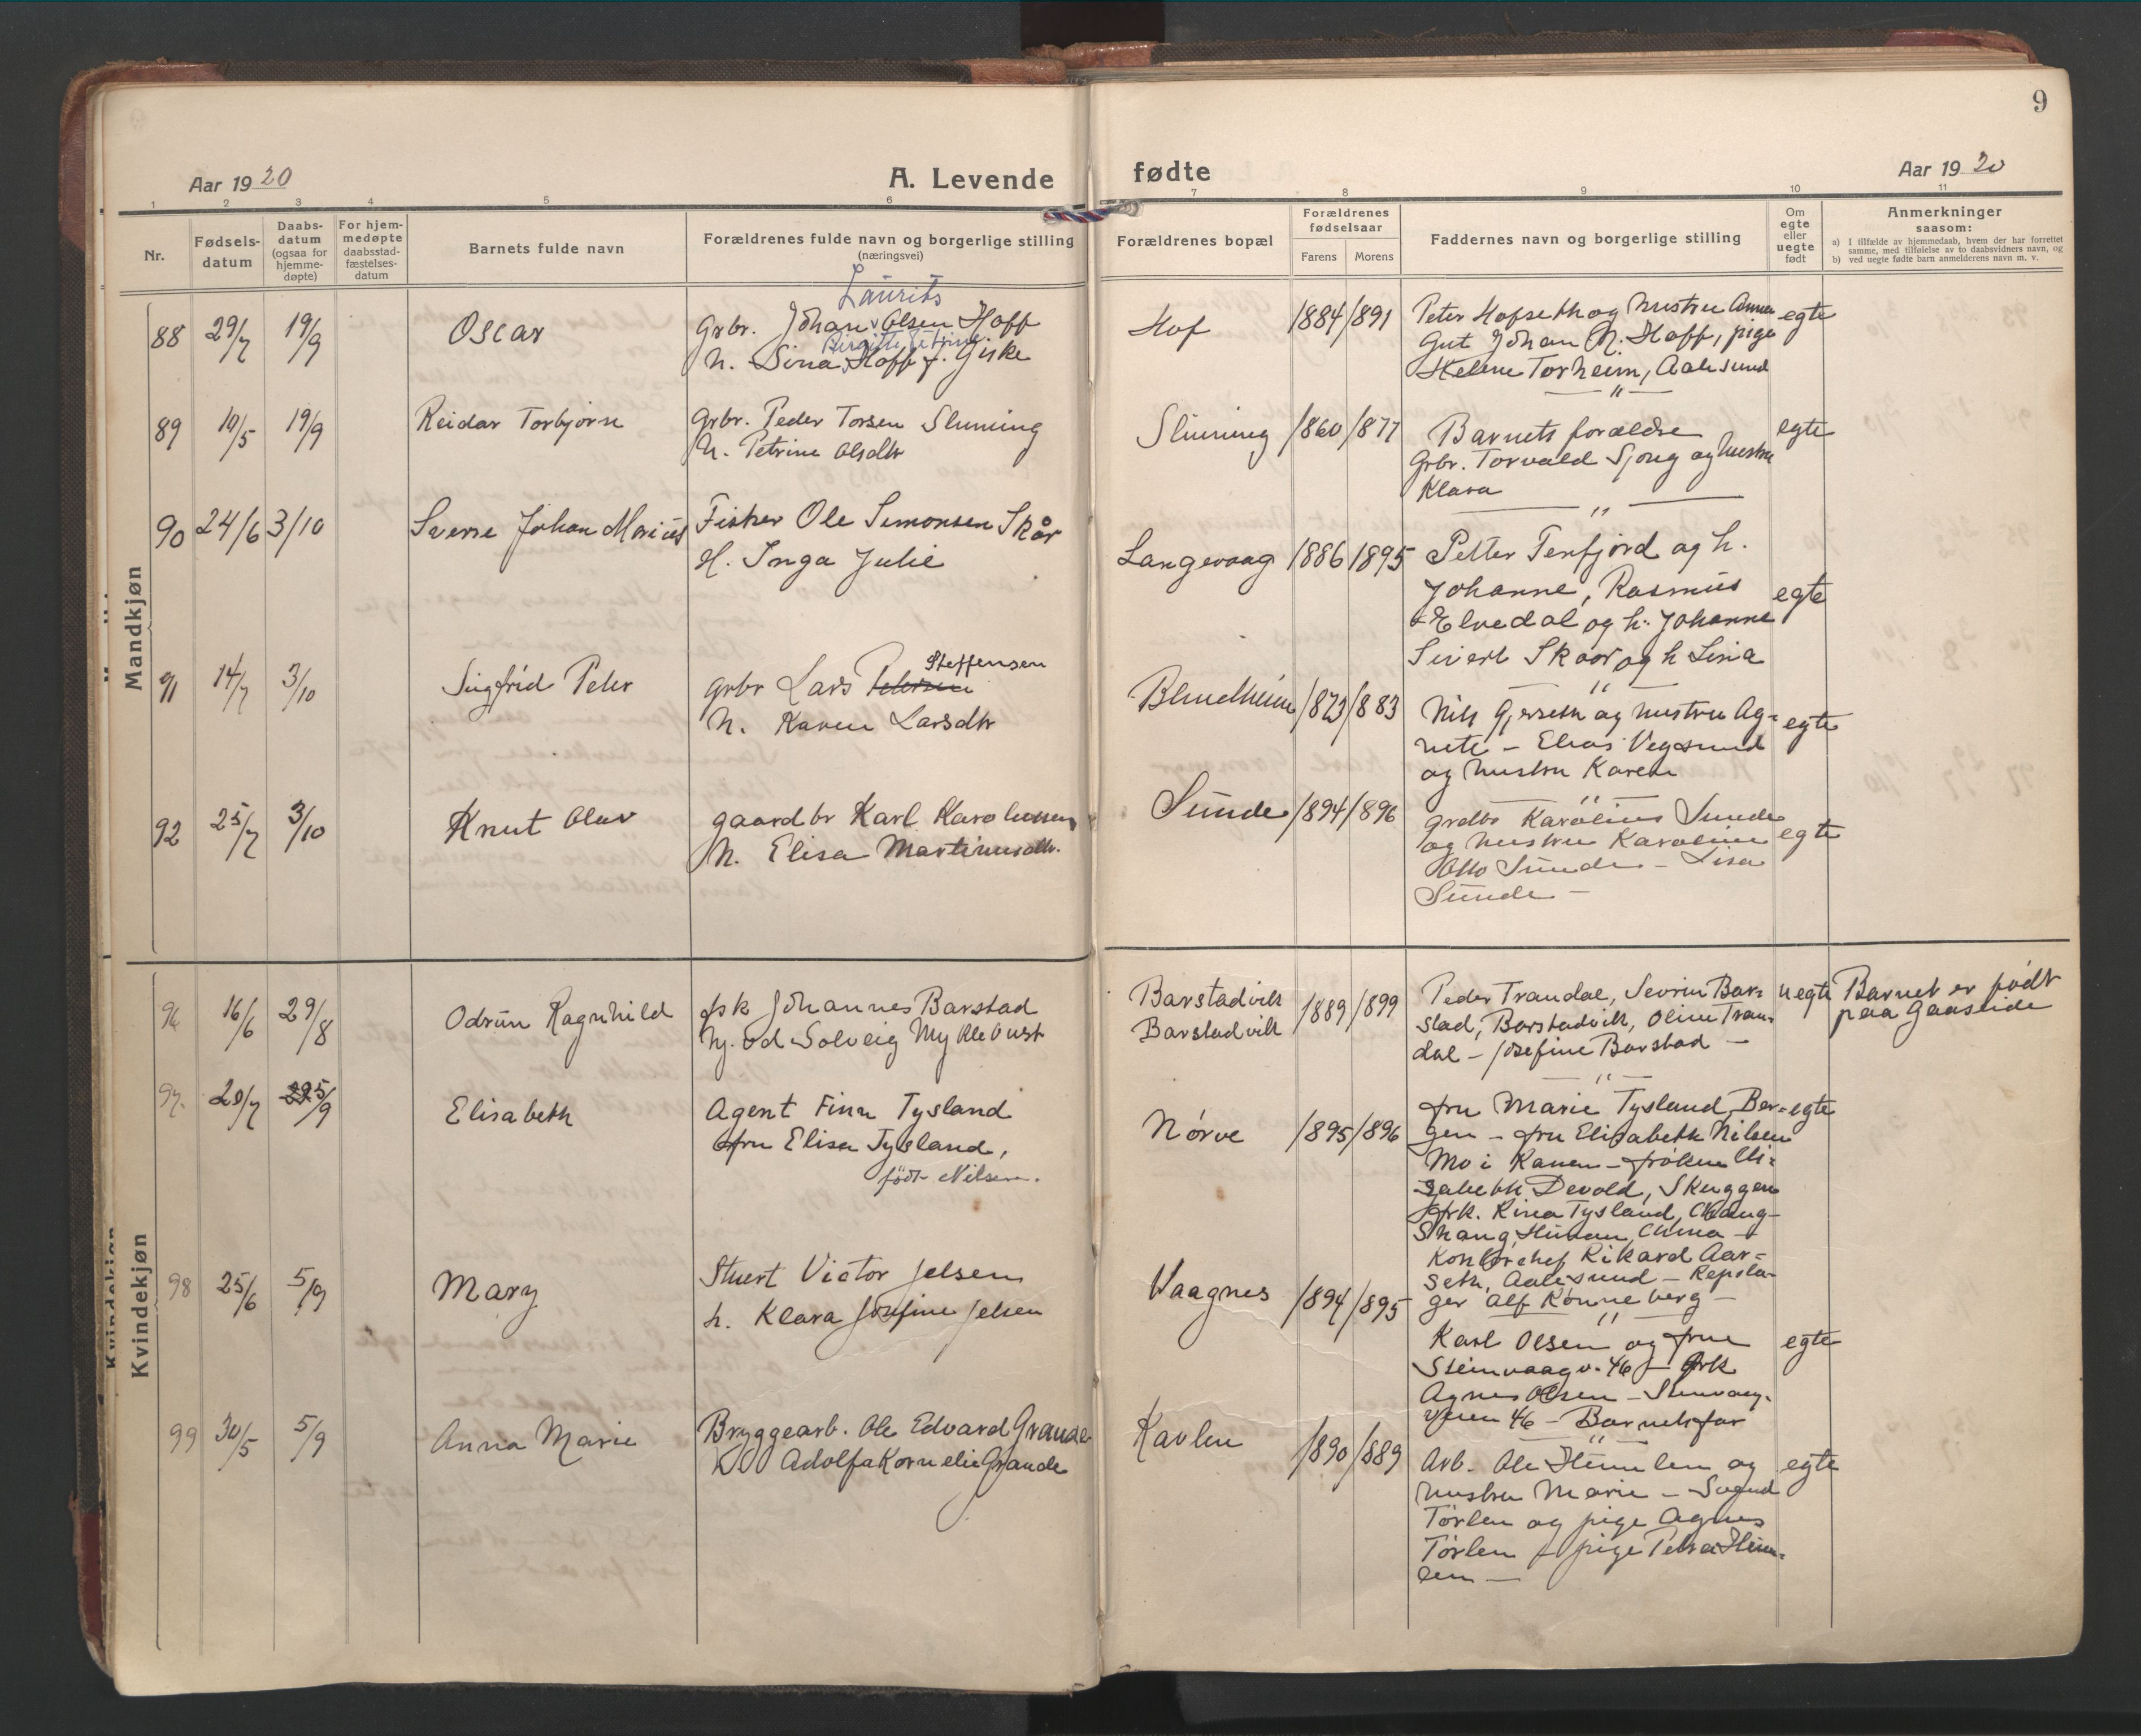 9
Aar 1920
A. Levende
fødte
Aar 1920
1 2 3 4 5 6 7 8 9 10 11
Nr.
Fødsels-
datum
Daabs-
datum
(ogsaa for
hjemme-
døpte)
For hjem-
medøpte
daabsstad-
fæstelses-
datum
Barnets fulde navn
Forældrenes fulde navn og borgerlige stilling
(næringsvei)
Forældrenes bopæl
Forældrenes
fødselsaar
Farens Morens
Faddernes navn og borgerlige stilling
Om
egte
eller
uegte
født
Anmerkninger
saasom:
a) I tilfælde av hjemmedaab, hvem der har forrettet
samme, med tilføielse av to daabsvidners navn, og
b) ved uegte fødte barn anmelderens navn m. v.
Mandkjøn
88 29/7 19/9 Oscar
Laurits
Grbr. Johan Olsen Hoff
Birgitte Petrine
h. Sina Hoff f. Giske
Hof 1884 1891
Peter Hofseth og hustru Anna
Gut Johan N. Hoff, pige
Helene Torheim, Aalesund
egte
89 10/5 19/9 Reidar Torbjørn
Grbr. Peder Torsen Slinning
h. Petrine Olsdtr
Slinning 1860 1877
Barnets forældre
Grbr. Torvald Sjong og hustru
Klara
egte
90 24/6 3/10 Sverre Johan Marius
Fisker Ole Simonsen Skår
H. Inga Julie
Langevaag 1886 1895
Petter Tenfjord og h.
Johanne, Rasmus
Elvedal og h. Johanne
Sivert Skaar og h Lina
egte
91 14/7 3/10 Sigfrid Peter
Steffensen
grbr Lars Petersen
h. Karen Larsdtr
Blindheim 1873 1883
Nils Gjerseth og hustru Ag-
nete - Elias Vegsund
og hustru Karen
egte
92 25/7 3/10 Knut Olav
gaardbr Karl Karolussen
h. Elisa Martinusdtr.
Sunde 1894 1896
grdbr Karolius Sunde
og hustru Karoline
Otto Sunde - Lisa
Sunde -
egte
Kvindekjøn
96 16/6 29/8 Odrun Ragnhild
fsk Johannes Barstad
Solveig Myklebust
Barstadvik
Barstadvik
1889 1899
Peder Trandal, Sevrin Bar-
stad, Barstadvik, Oline Tran-
dal - Josefine Barstad -
uegte
Barnet er født
paa Gaaseide
97. 20/7 5/9 Elisabeth
Agent Finn Tysland
fru Elisa Tysland,
født Nilsen.
Nørve 1895 1896
fru Marie Tysland, Ber-
gen - fru Elisabeth Nilsen
Mo i Ranen - frøken Eli-
sabeth Devold, Skuggen
frk. Rina Tysland, Chang-
Shang, Hunan, China -
Kontorchef Rikard Aar-
seth, Aalesund - Repsla-
ger Alf Rønneberg -
egte
98 25/6 5/9 Mary
Stuert Victor Jelsen
h. Klara Josfine Jelsen
Vaagnes 1894 1895
Karl Olsen og frue
Steinvaagv. 46 - frk
Agnes Olsen - Stenvaag-
veien 46 - Barnets far
egte
99 30/5 5/9 Anna Marie
Bryggearb. Ole Edvard Grande
Adolfa Kornelie Grande
Kavlen 1890 1889
Arb. Ole Himlen og
hustru Marie - Svend
Tørlen og pige Agnes
Tørlen - pige Petra Him-
len -
egte